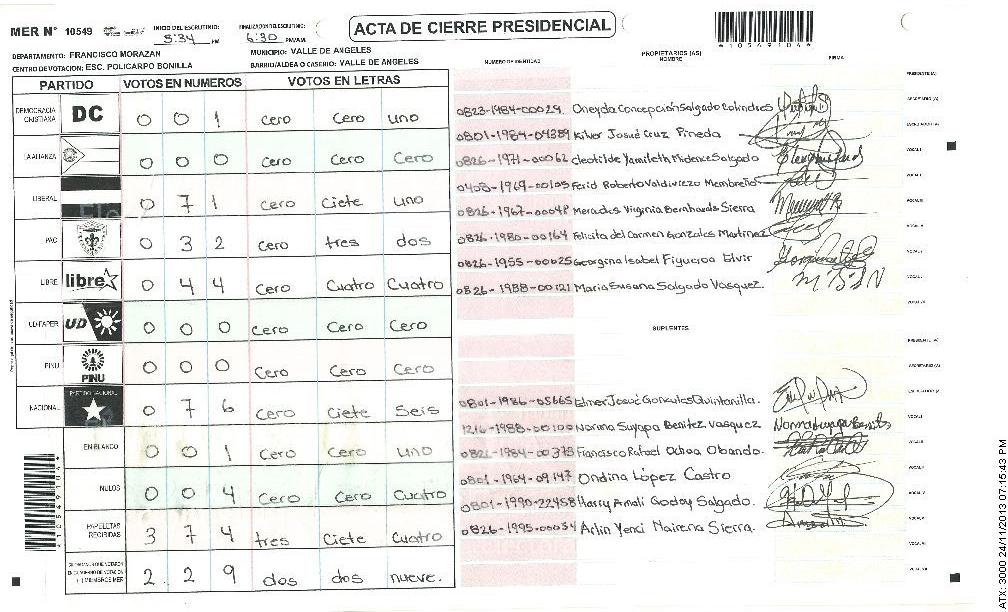 MER N° 10549
INICIO DEL ESCRUTINIO:
5:34 PM
FINALIZACION DEL ESCRUTINIO:
6:30 PM/AM.
ACTA DE CIERRE PRESIDENCIAL
*1054910A*
DEPARTAMENTO: FRANCISCO MORAZAN
MUNICIPIO: VALLE DE ANGELES
CENTRO DE VOTACION: ESC. POLICARPO BONILLA
BARRIO/ALDEA O CASERIO: VALLE DE ANGELES
PARTIDO VOTOS EN NUMEROS VOTOS EN LETRAS
NUMERO DE IDENTIDAD
PROPIETARIOS (AS)
NOMBRE
FIRMA
DEMOCRACIA CRISTIANA DC 0 0 1 cero Cero uno
LA ALIANZA 0 0 0 Cero Cero Cero
LIBERAL 0 7 1 cero Ciete uno
PAC 0 3 2 cero tres dos
LIBRE libre 0 4 4 Cero Cuatro Cuatro
UD-FAPER UD 0 0 0 Cero Cero Cero
PINU PINU 0 0 0 Cero Cero Cero
NACIONAL PARTIDO NACIONAL 0 7 6 Cero Ciete Seis
EN BLANCO 0 0 1 Cero Cero uno
NULOS 0 0 4 Cero Cero Cuatro
PAPELETAS RECIBIDAS 3 7 4 tres Ciete Cuatro
2 2 9 dos dos nueve.
0823-1984-00029 Oneyda Concepcion Salgado Colindres
0801-1984-04389 Kilver Josué Cruz Pineda
0826-1971-00062 Cleotilde Yamileth Midence Salgado
0408-1969-00105 Ferid Roberto Valdiviezo Membreño
0826-1967-00048 Mercedes Virginia Bernhards Sierra
0826-1980-00164 Felicita del Carmen Gonzales Martinez
0826-1955-00025 Georgina Isabel Figueroa Elvir
0826-1988-00121 Maria Susana Salgado Vasquez.
SUPLENTES
0801-1986-05665 Elmer Josué Gonzales Quintanilla.
1216-1988-00100 Norma Suyapa Benitez Vasquez
Francisco Rafael Ochoa Obando.
0801-1964-09147 Ondina López Castro
0801-1990-22458 Harry Amali Godoy Salgado.
0826-1995-00034 Arlin Yenci Mairena Sierra.
PRESIDENTE (A)
SECRETARIO (A)
ESCRUTADOR (A)
VOCAL I
*1054910A*
ATX: 3000 24/11/2013 07:15:43 PM